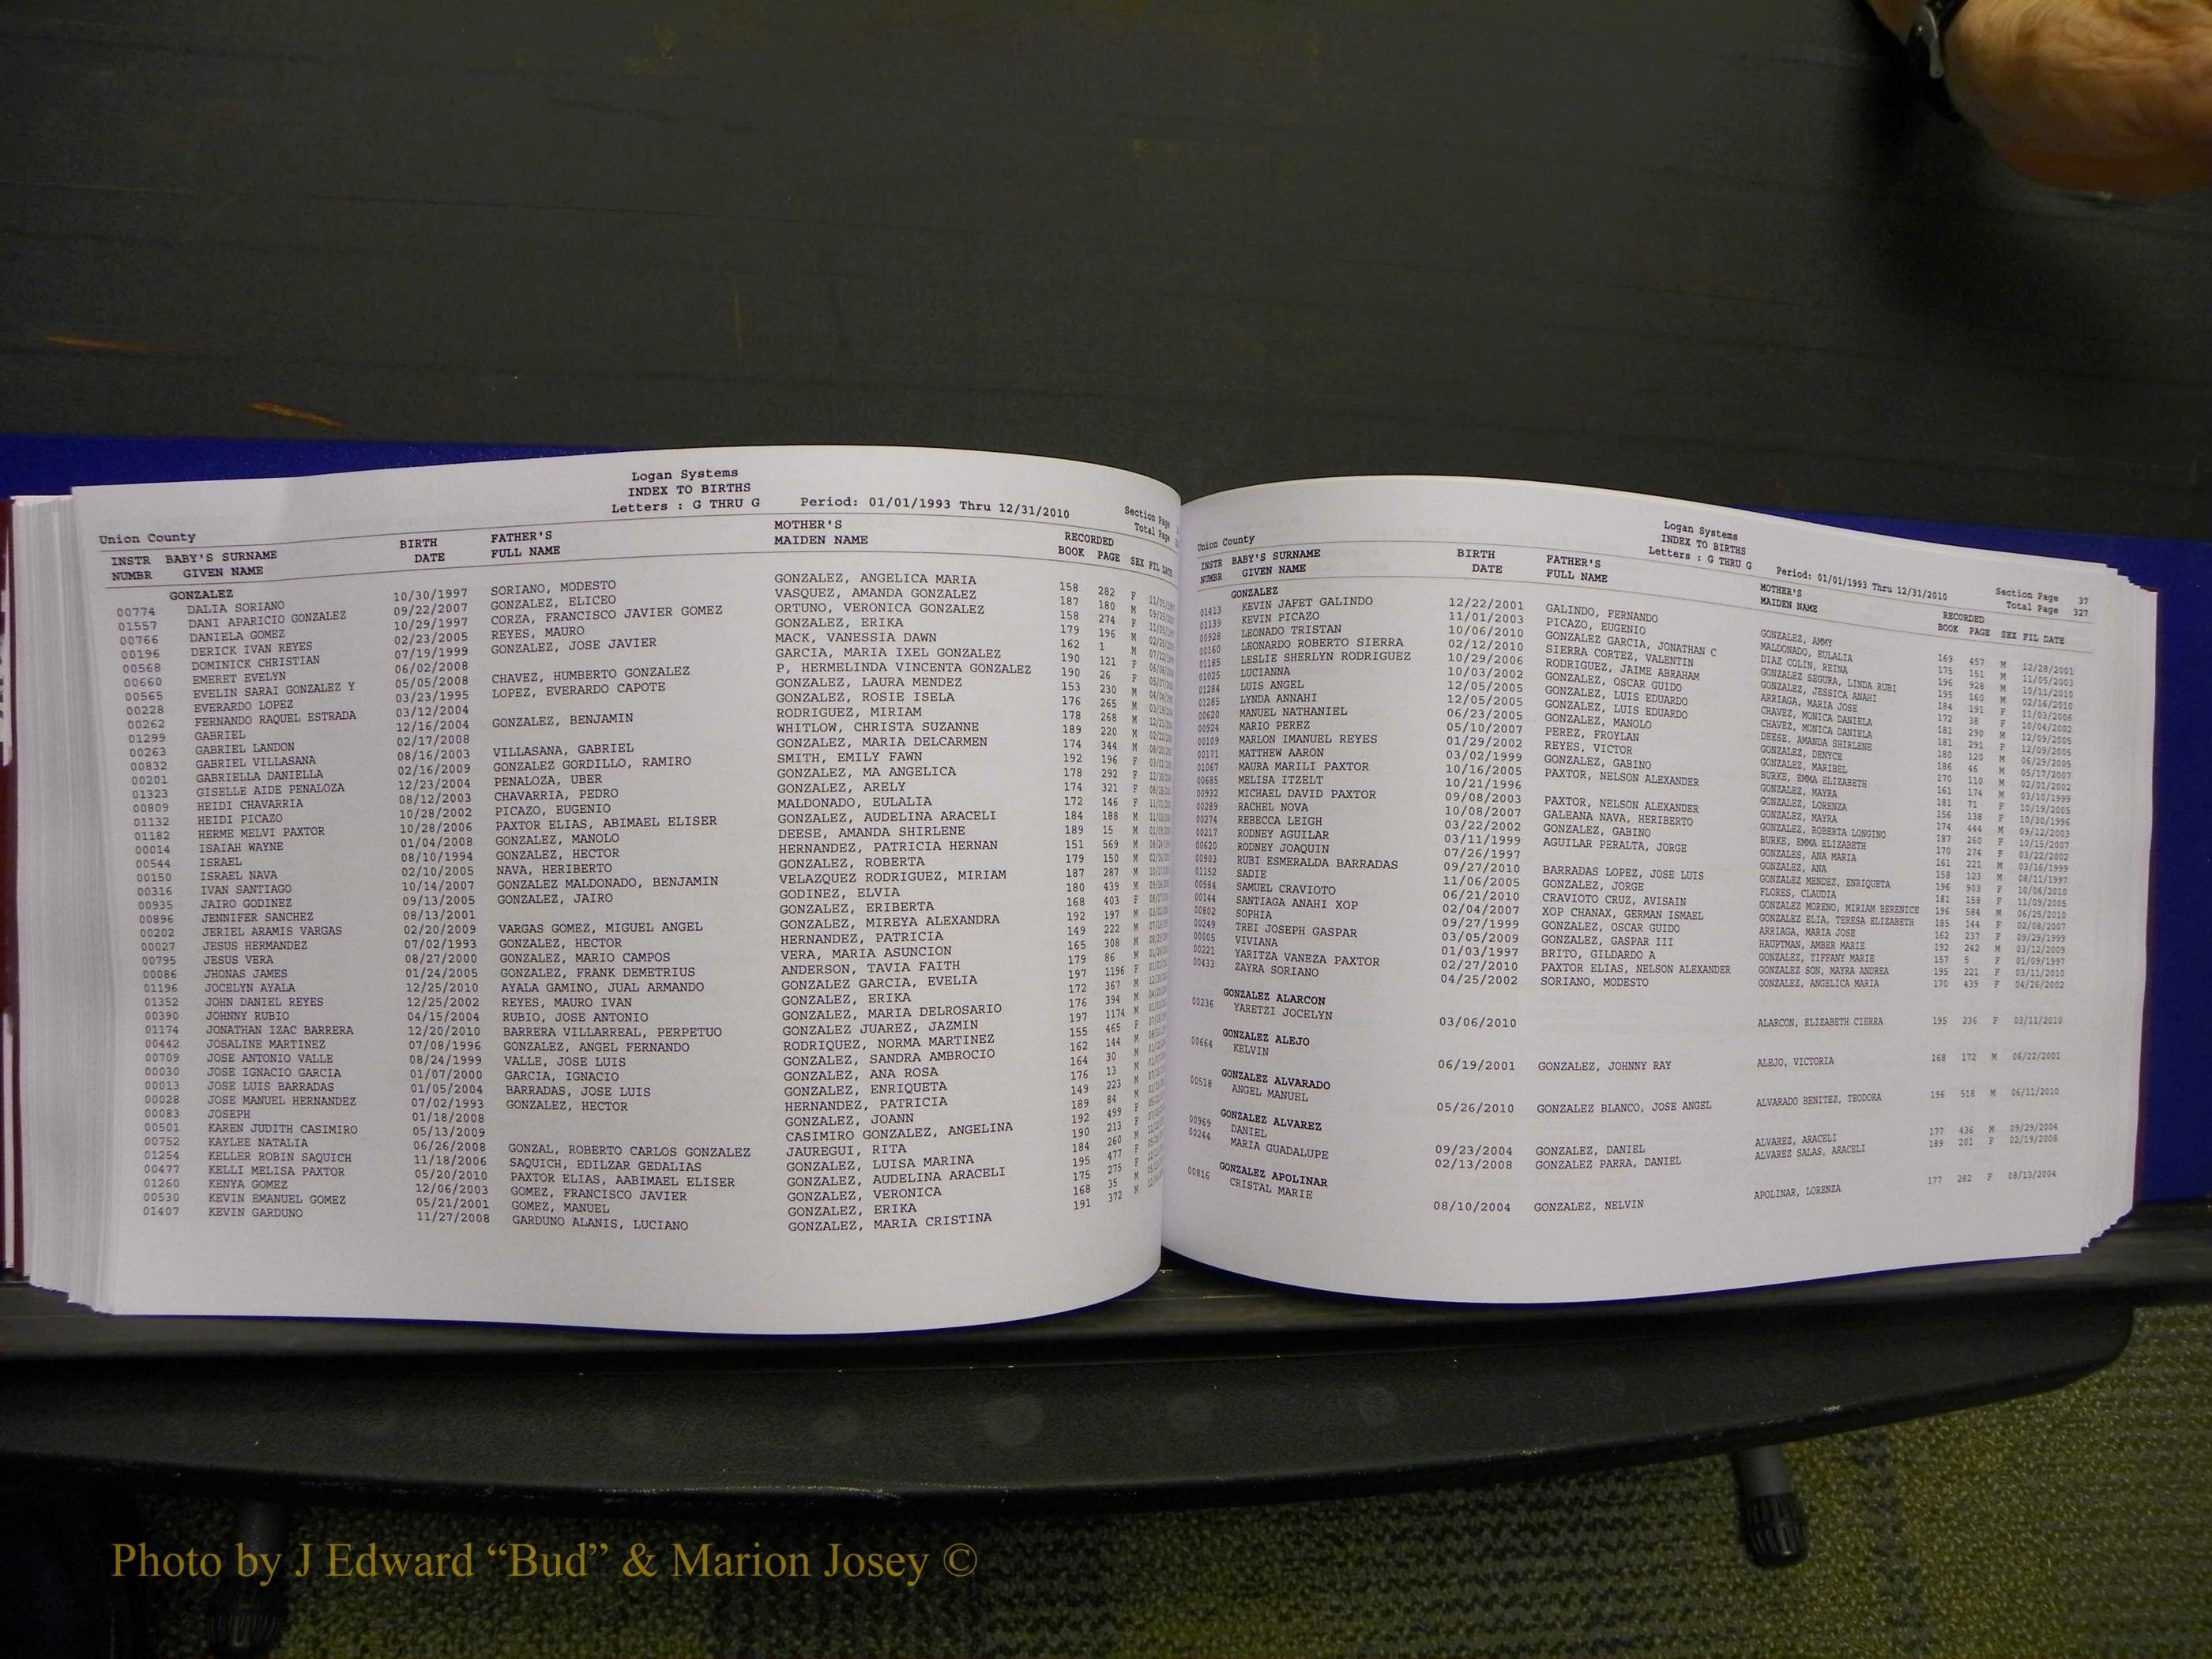 Logan Systems
INDEX TO BIRTHS
Letters : G THRU G Period: 01/01/1993 Thru 12/31/2010
Section Page
Total Page
Union County
INSTR BABY'S SURNAME BIRTH FATHER'S MOTHER'S RECORDED
NUMBR GIVEN NAME DATE FULL NAME MAIDEN NAME BOOK PAGE SEX FIL DATE
GONZALEZ
00774 DALIA SORIANO 10/30/1997 SORIANO, MODESTO GONZALEZ, ANGELICA MARIA 158 282 F
01557 DANI APARICIO GONZALEZ 09/22/2007 GONZALEZ, ELICEO VASQUEZ, AMANDA GONZALEZ 187 180 M
00766 DANIELA GOMEZ 10/29/1997 CORZA, FRANCISCO JAVIER GOMEZ ORTUNO, VERONICA GONZALEZ 158 274 F
00196 DERICK IVAN REYES 02/23/2005 REYES, MAURO GONZALEZ, ERIKA 179 196 M
00568 DOMINICK CHRISTIAN 07/19/1999 GONZALEZ, JOSE JAVIER MACK, VANESSIA DAWN 162 1 M
00660 EMERET EVELYN 06/02/2008 GARCIA, MARIA IXEL GONZALEZ 190 121 F
00565 EVELIN SARAI GONZALEZ Y 05/05/2008 CHAVEZ, HUMBERTO GONZALEZ P, HERMELINDA VINCENTA GONZALEZ 190 26 F
00228 EVERARDO LOPEZ 03/23/1995 LOPEZ, EVERARDO CAPOTE GONZALEZ, LAURA MENDEZ 153 230 M
00262 FERNANDO RAQUEL ESTRADA 03/12/2004 GONZALEZ, ROSIE ISELA 176 265 M
01299 GABRIEL 12/16/2004 GONZALEZ, BENJAMIN RODRIGUEZ, MIRIAM 178 268 M
00263 GABRIEL LANDON 02/17/2008 WHITLOW, CHRISTA SUZANNE 189 220 M
00832 GABRIEL VILLASANA 08/16/2003 VILLASANA, GABRIEL GONZALEZ, MARIA DELCARMEN 174 344 M
00201 GABRIELLA DANIELLA 02/16/2009 GONZALEZ GORDILLO, RAMIRO SMITH, EMILY FAWN 192 196 F
01323 GISELLE AIDE PENALOZA 12/23/2004 PENALOZA, UBER GONZALEZ, MA ANGELICA 178 292 F
00809 HEIDI CHAVARRIA 08/12/2003 CHAVARRIA, PEDRO GONZALEZ, ARELY 174 321 F
01132 HEIDI PICAZO 10/28/2002 PICAZO, EUGENIO MALDONADO, EULALIA 172 146 F
01182 HERME MELVI PAXTOR 10/28/2006 PAXTOR ELIAS, ABIMAEL ELISER GONZALEZ, AUDELINA ARACELI 184 188 M
00014 ISAIAH WAYNE 01/04/2008 GONZALEZ, MANOLO DEESE, AMANDA SHIRLENE 189 15 M
00544 ISRAEL 08/10/1994 GONZALEZ, HECTOR HERNANDEZ, PATRICIA HERNAN 151 569 M
00150 ISRAEL NAVA 02/10/2005 NAVA, HERIBERTO GONZALEZ, ROBERTA 179 150 M
00316 IVAN SANTIAGO 10/14/2007 GONZALEZ MALDONADO, BENJAMIN VELAZQUEZ RODRIGUEZ, MIRIAM 187 287 M
00935 JAIRO GODINEZ 09/13/2005 GONZALEZ, JAIRO GODINEZ, ELVIA 180 439 M
00896 JENNIFER SANCHEZ 08/13/2001 GONZALEZ, ERIBERTA 168 403 F
00202 JERIEL ARAMIS VARGAS 02/20/2009 VARGAS GOMEZ, MIGUEL ANGEL GONZALEZ, MIREYA ALEXANDRA 192 197 M
00027 JESUS HERMANDEZ 07/02/1993 GONZALEZ, HECTOR HERNANDEZ, PATRICIA 149 222 M
00795 JESUS VERA 08/27/2000 GONZALEZ, MARIO CAMPOS VERA, MARIA ASUNCION 165 308 M
00086 JHONAS JAMES 01/24/2005 GONZALEZ, FRANK DEMETRIUS ANDERSON, TAVIA FAITH 179 86 M
01196 JOCELYN AYALA 12/25/2010 AYALA GAMINO, JUAL ARMANDO GONZALEZ GARCIA, EVELIA 197 1196 F
01352 JOHN DANIEL REYES 12/25/2002 REYES, MAURO IVAN GONZALEZ, ERIKA 172 367 M
00390 JOHNNY RUBIO 04/15/2004 RUBIO, JOSE ANTONIO GONZALEZ, MARIA DELROSARIO 176 394 M
01174 JONATHAN IZAC BARRERA 12/20/2010 BARRERA VILLARREAL, PERPETUO GONZALEZ JUAREZ, JAZMIN 197 1174 M
00442 JOSALINE MARTINEZ 07/08/1996 GONZALEZ, ANGEL FERNANDO RODRIQUEZ, NORMA MARTINEZ 155 465 F
00709 JOSE ANTONIO VALLE 08/24/1999 VALLE, JOSE LUIS GONZALEZ, SANDRA AMBROCIO 162 144 M
00030 JOSE IGNACIO GARCIA 01/07/2000 GARCIA, IGNACIO GONZALEZ, ANA ROSA 164 30 M
00013 JOSE LUIS BARRADAS 01/05/2004 BARRADAS, JOSE LUIS GONZALEZ, ENRIQUETA 176 13 M
00028 JOSE MANUEL HERNANDEZ 07/02/1993 GONZALEZ, HECTOR HERNANDEZ, PATRICIA 149 223 M
00083 JOSEPH 01/18/2008 GONZALEZ, JOANN 189 84 M
00501 KAREN JUDITH CASIMIRO 05/13/2009 CASIMIRO GONZALEZ, ANGELINA 192 499 F
00752 KAYLEE NATALIA 06/26/2008 GONZAL, ROBERTO CARLOS GONZALEZ JAUREGUI, RITA 190 213 F
01254 KELLER ROBIN SAQUICH 11/18/2006 SAQUICH, EDILZAR GEDALIAS GONZALEZ, LUISA MARINA 184 260 M
00477 KELLI MELISA PAXTOR 05/20/2010 PAXTOR ELIAS, AABIMAEL ELISER GONZALEZ, AUDELINA ARACELI 195 477 F
01260 KENYA GOMEZ 12/06/2003 GOMEZ, FRANCISCO JAVIER GONZALEZ, VERONICA 175 275 F
00530 KEVIN EMANUEL GOMEZ 05/21/2001 GOMEZ, MANUEL GONZALEZ, ERIKA 168 35 M
01407 KEVIN GARDUNO 11/27/2008 GARDUNO ALANIS, LUCIANO GONZALEZ, MARIA CRISTINA 191 372 M
Logan Systems
INDEX TO BIRTHS
Letters : G THRU G Period: 01/01/1993 Thru 12/31/2010
Section Page 37
Total Page 327
Union County
INSTR BABY'S SURNAME BIRTH FATHER'S MOTHER'S RECORDED
NUMBR GIVEN NAME DATE FULL NAME MAIDEN NAME BOOK PAGE SEX FIL DATE
GONZALEZ
01413 KEVIN JAFET GALINDO 12/22/2001 GALINDO, FERNANDO GONZALEZ, AMMY 169 457 M 12/28/2001
01139 KEVIN PICAZO 11/01/2003 PICAZO, EUGENIO MALDONADO, EULALIA 175 151 M 11/05/2003
00928 LEONADO TRISTAN 10/06/2010 GONZALEZ GARCIA, JONATHAN C DIAZ COLIN, REINA 196 928 M 10/11/2010
00160 LEONARDO ROBERTO SIERRA 02/12/2010 SIERRA CORTEZ, VALENTIN GONZALEZ SEGURA, LINDA RUBI 195 160 M 02/16/2010
01185 LESLIE SHERLYN RODRIGUEZ 10/29/2006 RODRIGUEZ, JAIME ABRAHAM GONZALEZ, JESSICA ANAHI 184 191 F 11/03/2006
01025 LUCIANNA 10/03/2002 GONZALEZ, OSCAR GUIDO ARRIAGA, MARIA JOSE 172 38 F 10/04/2002
01284 LUIS ANGEL 12/05/2005 GONZALEZ, LUIS EDUARDO CHAVEZ, MONICA DANIELA 181 290 M 12/09/2005
01285 LYNDA ANNAHI 12/05/2005 GONZALEZ, LUIS EDUARDO CHAVEZ, MONICA DANIELA 181 291 F 12/09/2005
00620 MANUEL NATHANIEL 06/23/2005 GONZALEZ, MANOLO DEESE, AMANDA SHIRLENE 180 120 M 06/29/2005
00924 MARIO PEREZ 05/10/2007 PEREZ, FROYLAN GONZALEZ, DENYCE 186 46 M 05/17/2007
00109 MARLON IMANUEL REYES 01/29/2002 REYES, VICTOR GONZALEZ, MARIBEL 170 110 M 02/01/2002
00171 MATTHEW AARON 03/02/1999 GONZALEZ, GABINO BURKE, EMMA ELIZABETH 161 174 M 03/10/1999
01067 MAURA MARILI PAXTOR 10/16/2005 PAXTOR, NELSON ALEXANDER GONZALEZ, MAYRA 181 71 F 10/19/2005
00685 MELISA ITZELT 10/21/1996 GONZALEZ, LORENZA 156 138 F 10/30/1996
00932 MICHAEL DAVID PAXTOR 09/08/2003 PAXTOR, NELSON ALEXANDER GONZALEZ, MAYRA 174 444 M 09/12/2003
00289 RACHEL NOVA 10/08/2007 GALEANA NAVA, HERIBERTO GONZALEZ, ROBERTA LONGINO 187 260 F 10/15/2007
00274 REBECCA LEIGH 03/22/2002 GONZALEZ, GABINO BURKE, EMMA ELIZABETH 170 274 F 03/22/2002
00217 RODNEY AGUILAR 03/11/1999 AGUILAR PERALTA, JORGE GONZALES, ANA MARIA 161 221 M 03/16/1999
00620 RODNEY JOAQUIN 07/26/1997 GONZALEZ, ANA 158 123 M 08/11/1997
00903 RUBI ESMERALDA BARRADAS 09/27/2010 BARRADAS LOPEZ, JOSE LUIS GONZALEZ MENDEZ, ENRIQUETA 196 903 F 10/06/2010
01152 SADIE 11/06/2005 GONZALEZ, JORGE FLORES, CLAUDIA 181 158 F 11/09/2005
00584 SAMUEL CRAVIOTO 06/21/2010 CRAVIOTO CRUZ, AVISAIN GONZALEZ MORENO, MIRIAM BERENICE 196 584 M 06/25/2010
00144 SANTIAGA ANAHI XOP 02/04/2007 XOP CHANAX, GERMAN ISMAEL GONZALEZ ELIA, TERESA ELIZABETH 185 144 F 02/08/2007
00802 SOPHIA 09/27/1999 GONZALEZ, OSCAR GUIDO ARRIAGA, MARIA JOSE 162 237 F 09/29/1999
00249 TREI JOSEPH GASPAR 03/05/2009 GONZALEZ, GASPAR III HAUPTMAN, AMBER MARIE 192 242 M 03/12/2009
00005 VIVIANA 01/03/1997 BRITO, GILDARDO A GONZALEZ, TIFFANY MARIE 157 5 F 01/09/1997
00221 YARITZA VANEZA PAXTOR 02/27/2010 PAXTOR ELIAS, NELSON ALEXANDER GONZALEZ SON, MAYRA ANDREA 195 221 F 03/11/2010
00433 ZAYRA SORIANO 04/25/2002 SORIANO, MODESTO GONZALEZ, ANGELICA MARIA 170 439 F 04/26/2002
GONZALEZ ALARCON
00236 YARETZI JOCELYN 03/06/2010 ALARCON, ELIZABETH CIERRA 195 236 F 03/11/2010
GONZALEZ ALEJO
00664 KELVIN 06/19/2001 GONZALEZ, JOHNNY RAY ALEJO, VICTORIA 168 172 M 06/22/2001
GONZALEZ ALVARADO
00518 ANGEL MANUEL 05/26/2010 GONZALEZ BLANCO, JOSE ANGEL ALVARADO BENITEZ, TEODORA 196 518 M 06/11/2010
GONZALEZ ALVAREZ
00969 DANIEL 09/23/2004 GONZALEZ, DANIEL ALVAREZ, ARACELI 177 436 M 09/29/2004
00244 MARIA GUADALUPE 02/13/2008 GONZALEZ PARRA, DANIEL ALVAREZ SALAS, ARACELI 189 201 F 02/19/2008
GONZALEZ APOLINAR
00816 CRISTAL MARIE 08/10/2004 GONZALEZ, NELVIN APOLINAR, LORENZA 177 282 F 08/13/2004
Photo by J Edward “Bud” & Marion Josey ©